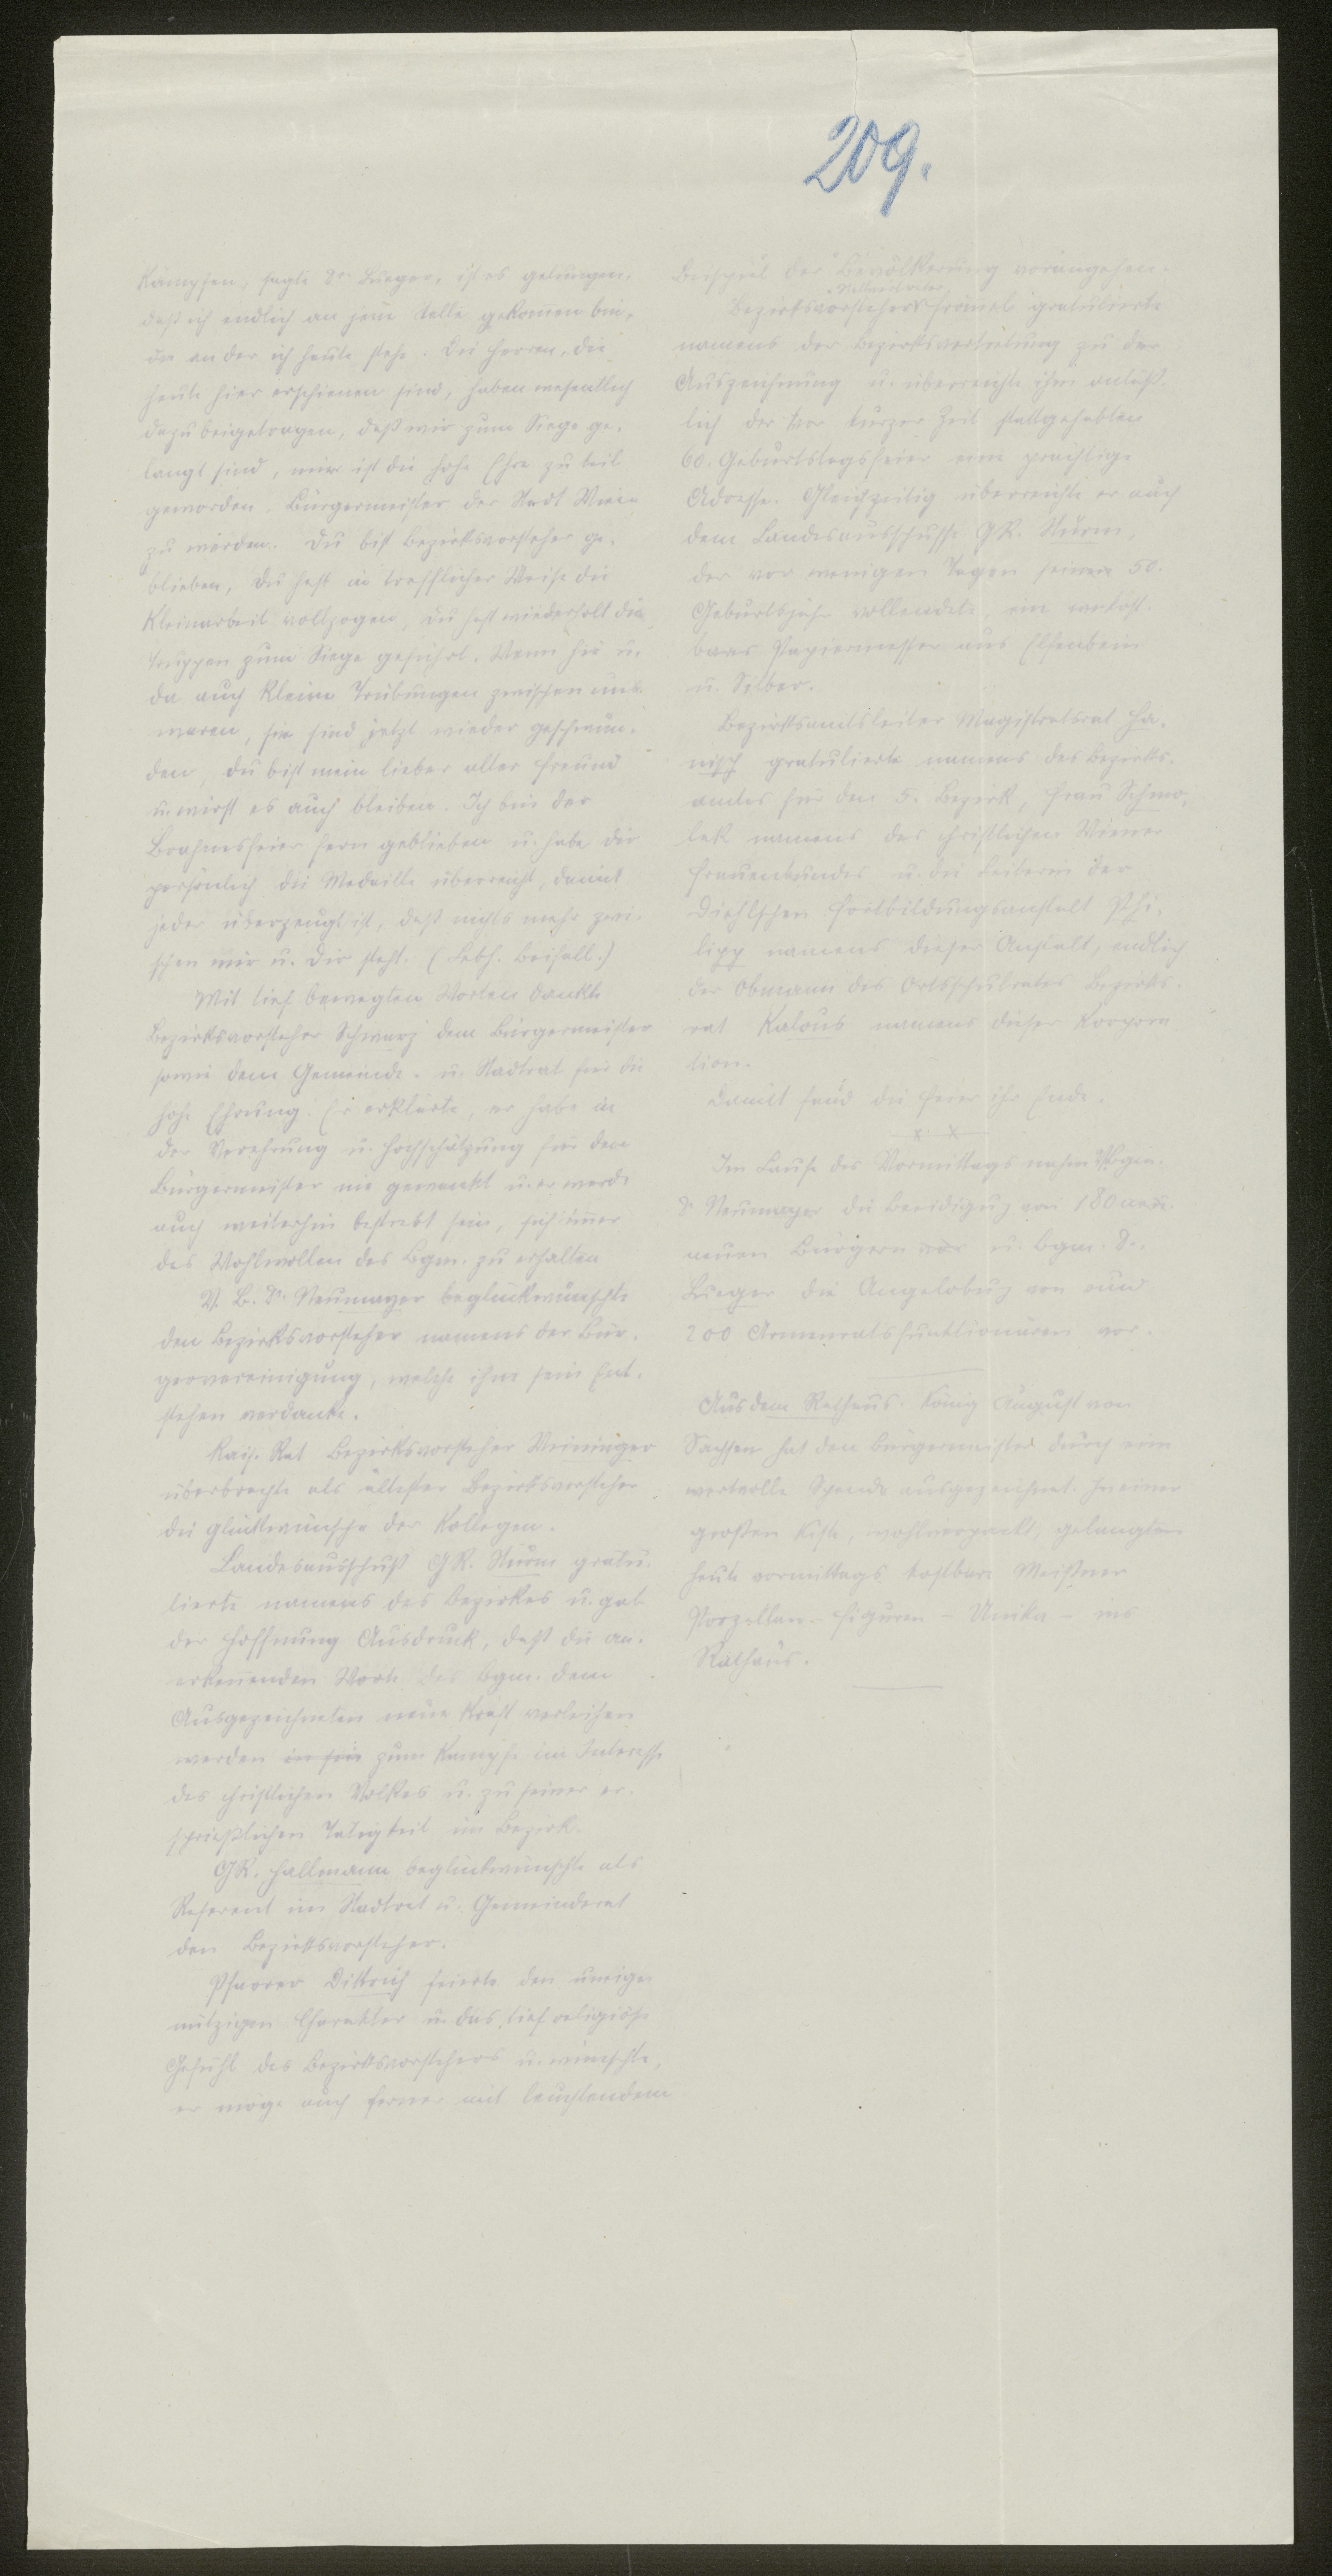 209.
Kämpfen, sagte Dr. Lueger, ist es gelungen,
daß ich endlich an jene Stelle gekommen bin,
an der ich heute stehe. Die Herren, die
heute hier erschienen sind, haben wesentlich
dazu beigetragen, daß wir zum Siege ge-
langt sind, mir ist die hohe Ehre zu teil
geworden, Bürgermeister der Stadt Wien
zu werden. Du bist Bezirksvorsteher ge-
blieben, Du hast in trefflicher Weise die
Kleinarbeit vollzogen, Du hast wiederholt die
Truppen zum Siege geführt. Wenn hie u.
da auch kleine Trübungen zwischen uns
waren, sie sind jetzt wieder geschwun-
den, Du bist mein lieber alter Freund
u. wirst es auch bleiben. Ich bin der
Brahmsfeier fern geblieben u. habe Dir
persönlich die Medaille überreicht, damit
jeder überzeugt ist, daß nichts mehr zwi-
schen mir u. Dir steht. (Lebh. Beifall.)
Mit tief bewegten Worten dankte
Bezirksvorsteher Schwarz dem Bürgermeister
sowie dem Gemeinde- u. Stadtrat für die
hohe Ehrung. Er erklärte, er habe in
der Verehrung u. Hochschätzung für den
Bürgermeister nie gewankt u. er werde
auch weiterhin bestrebt sein, sich immer
das Wohlwollen des Bgm. zu erhalten
V. B. Dr. Neumayer beglückwünschte
den Bezirksvorsteher namens der Bür-
gervereinigung, welche ihm sein Ent-
stehen verdanke.
Kais. Rat Bezirksvorsteher Weininger
überbrachte als ältester Bezirksvorsteher
die Glückwünsche der Kollegen.
Landesausschuß GR. Sturm gratu-
lierte namens des Bezirkes u. gab
der Hoffnung Ausdruck, daß die an-
erkennenden Worte des Bgm. dem
Ausgezeichneten neue Kraft verleihen
werden zum Kampfe im Interesse
des christlichen Volkes u. zu seiner er-
sprießlichen Tätigkeit im Bezirk.
GR. Hallmann beglückwünschte als
Referent im Stadtrat u. Gemeinderat
den Bezirksvorsteher.
Pfarrer Dittrich feierte den uneigen
nützigen Charakter u. das tief religiöse
Gefühl des Bezirksvorstehers u. wünschte,
er möge auch ferner mit leuchtendem
Beispiel der Bevölkerung vorangehen.
Stellvertreter
Bezirksvorsteher gratulierte
namens der Bezirksvertretung zu der
Auszeichnung u. überreichte ihm anläß-
lich der vor kurzer Zeit stattgehabten
60. Geburtstagsfeier eine prächtige
Adresse. Gleichzeitig überreichte er auch
dem Landesausschusse GR. Sturm,
der vor wenigen Tagen sein 50.
Geburtsjahr vollendete, ein
Papiermesser aus Elfenbein
u. Silber.
Bezirksamtsleiter Magistratsrat Ha-
nisch gratulierte namens des Bezirks-
amtes für den 5. Bezirk, Frau Schmo-
lek namens des christlichen Wiener
Frauenbundes u. die Leiterin der
Diehlschen Fortbildungsanstalt Phi-
lipp namens dieser Anstalt, endlich
der Obmann des Ortsschulrates Bezirks-
rat Kalous namens dieser Korpora
tion.
Damit fand die Feier ihr Ende.
x x
Im Laufe des Vormittags nahm VBgm.
Dr Neumayer die Beeidigung von 180
neuen Bürgern u. Bgm. Dr.
Lueger die Angelobung von rund
200 Armenratsfunktionären vor.
Aus dem Rathaus. König August von
Sachsen hat den Bürgermeister durch eine
wertvolle Spende ausgezeichnet. In einer
großen Kiste, wohlverpackt, gelangten
heute vormittags kostbare Meißner
Porzellan-Figuren - Unika - ins
Rathaus.